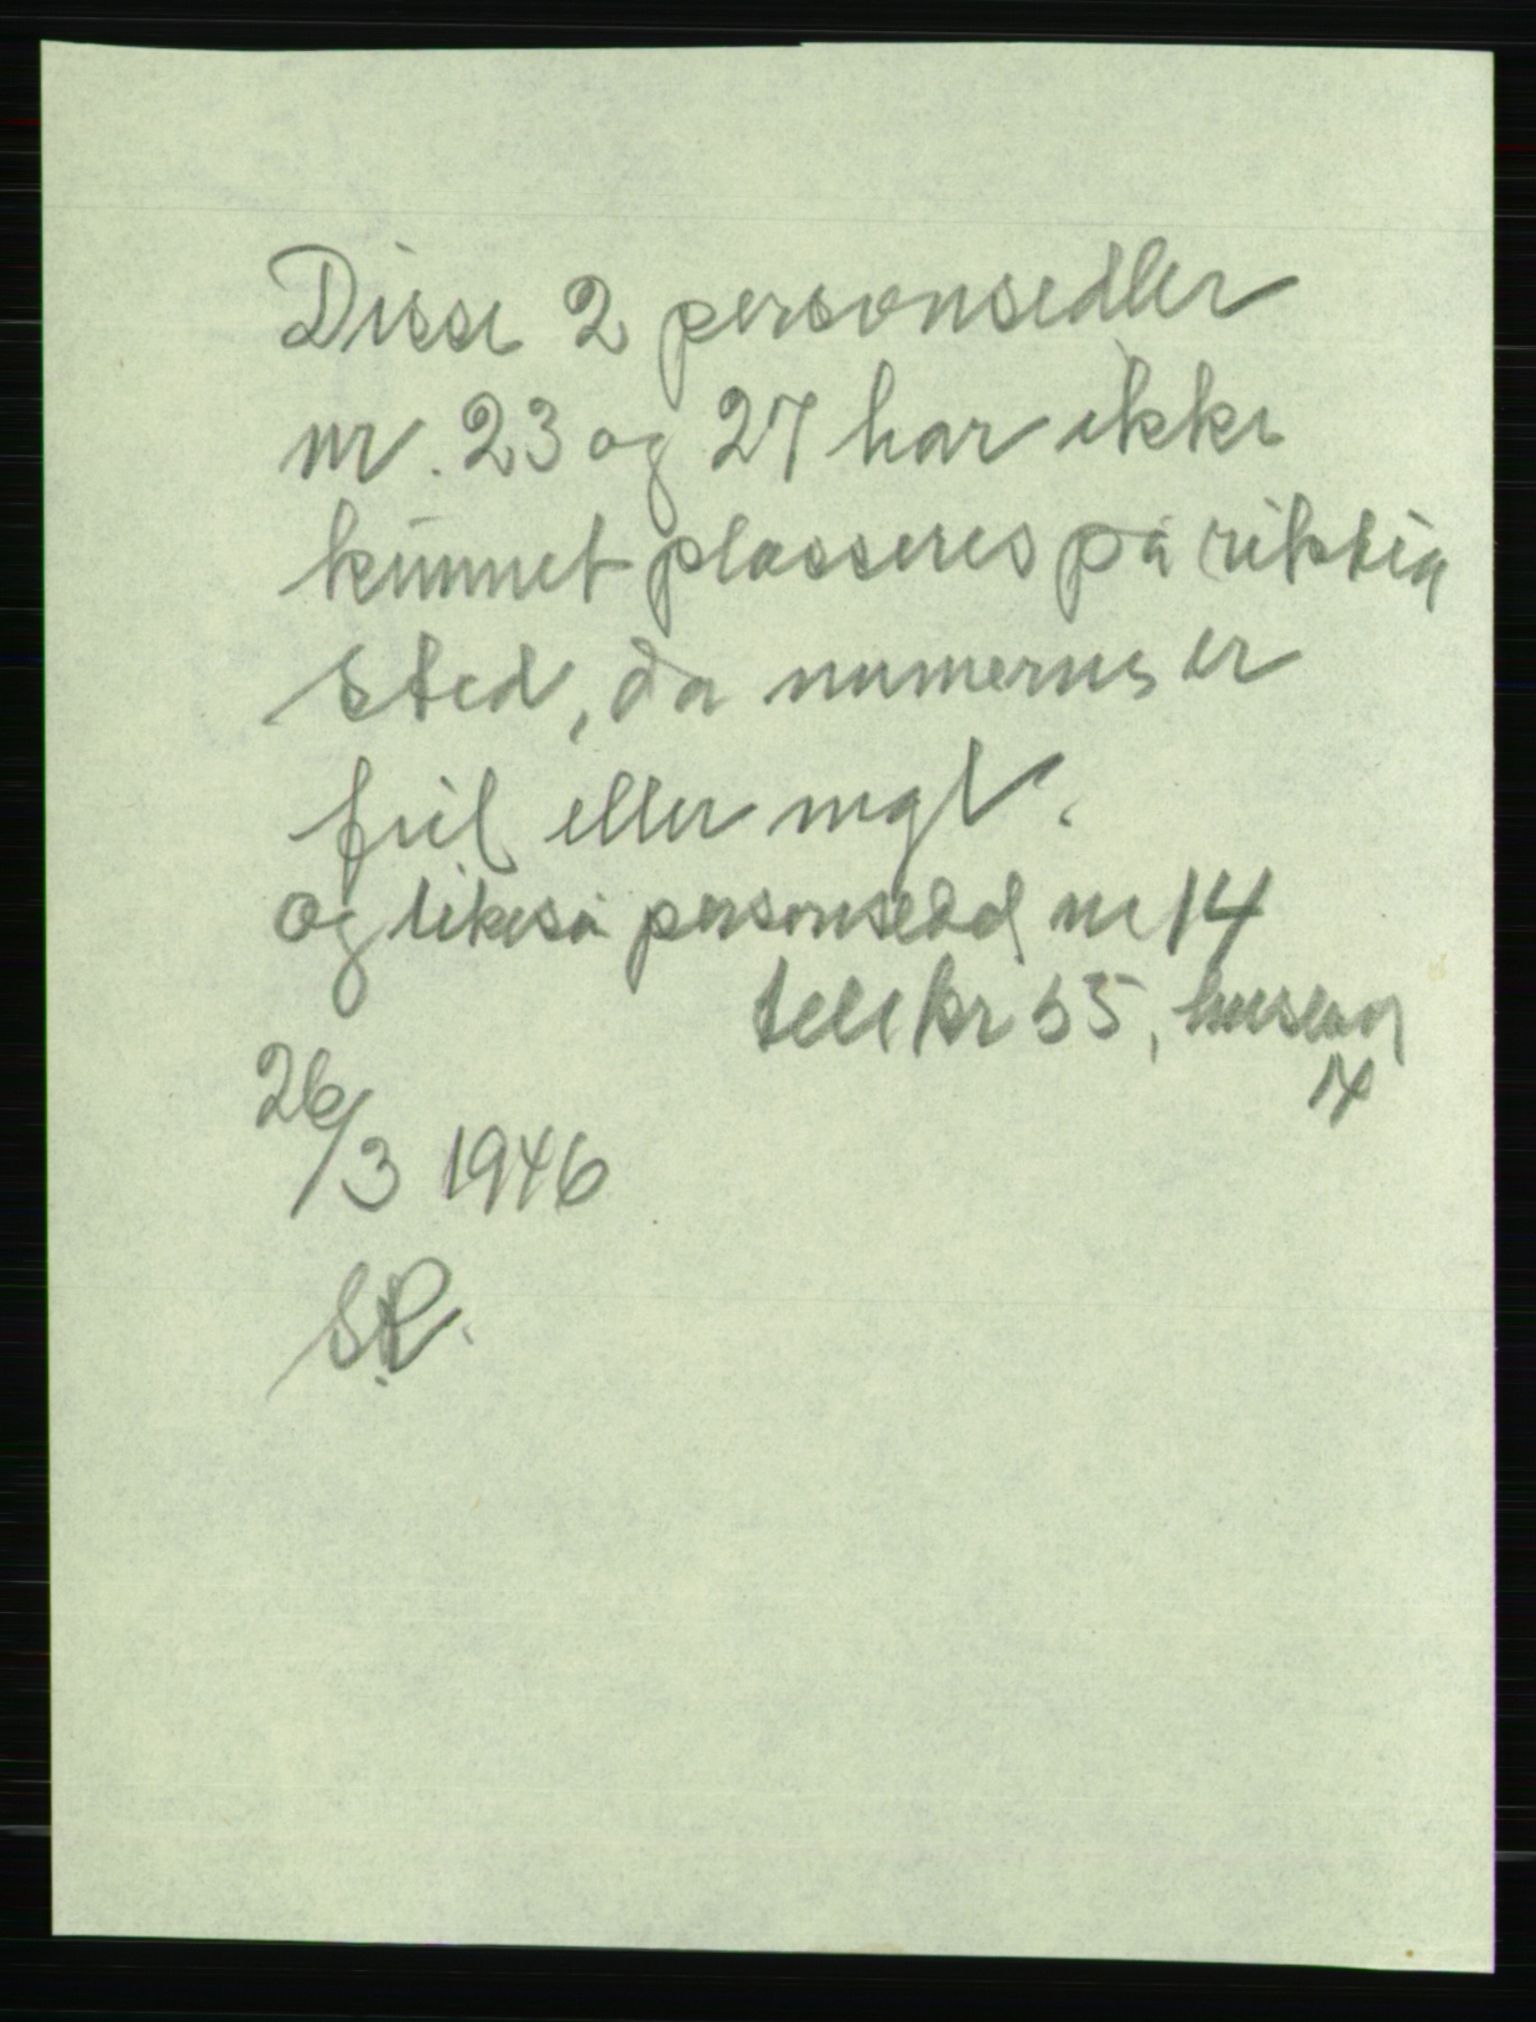 Disse 2 personsedler
nr. 23 og 27 har ikke
kunnet plasseres på riktig
sted, da numerne er
feil eller mgl.
og likeså personsedd nr 14
tellkr 55, huslag
14
26/3 1946
S.P.